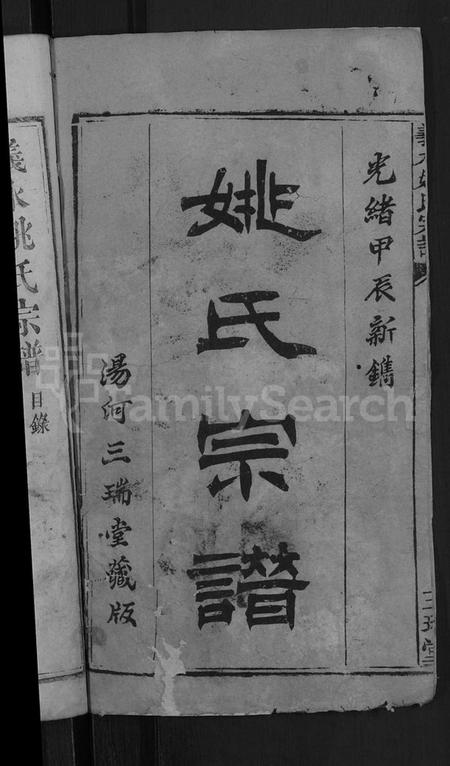 義水姚氏宗譜
光緒甲辰新鐫
姚氏宗譜
湯河三瑞堂藏版
三瑞堂
義水姚氏宗譜
目錄
FamilySearch